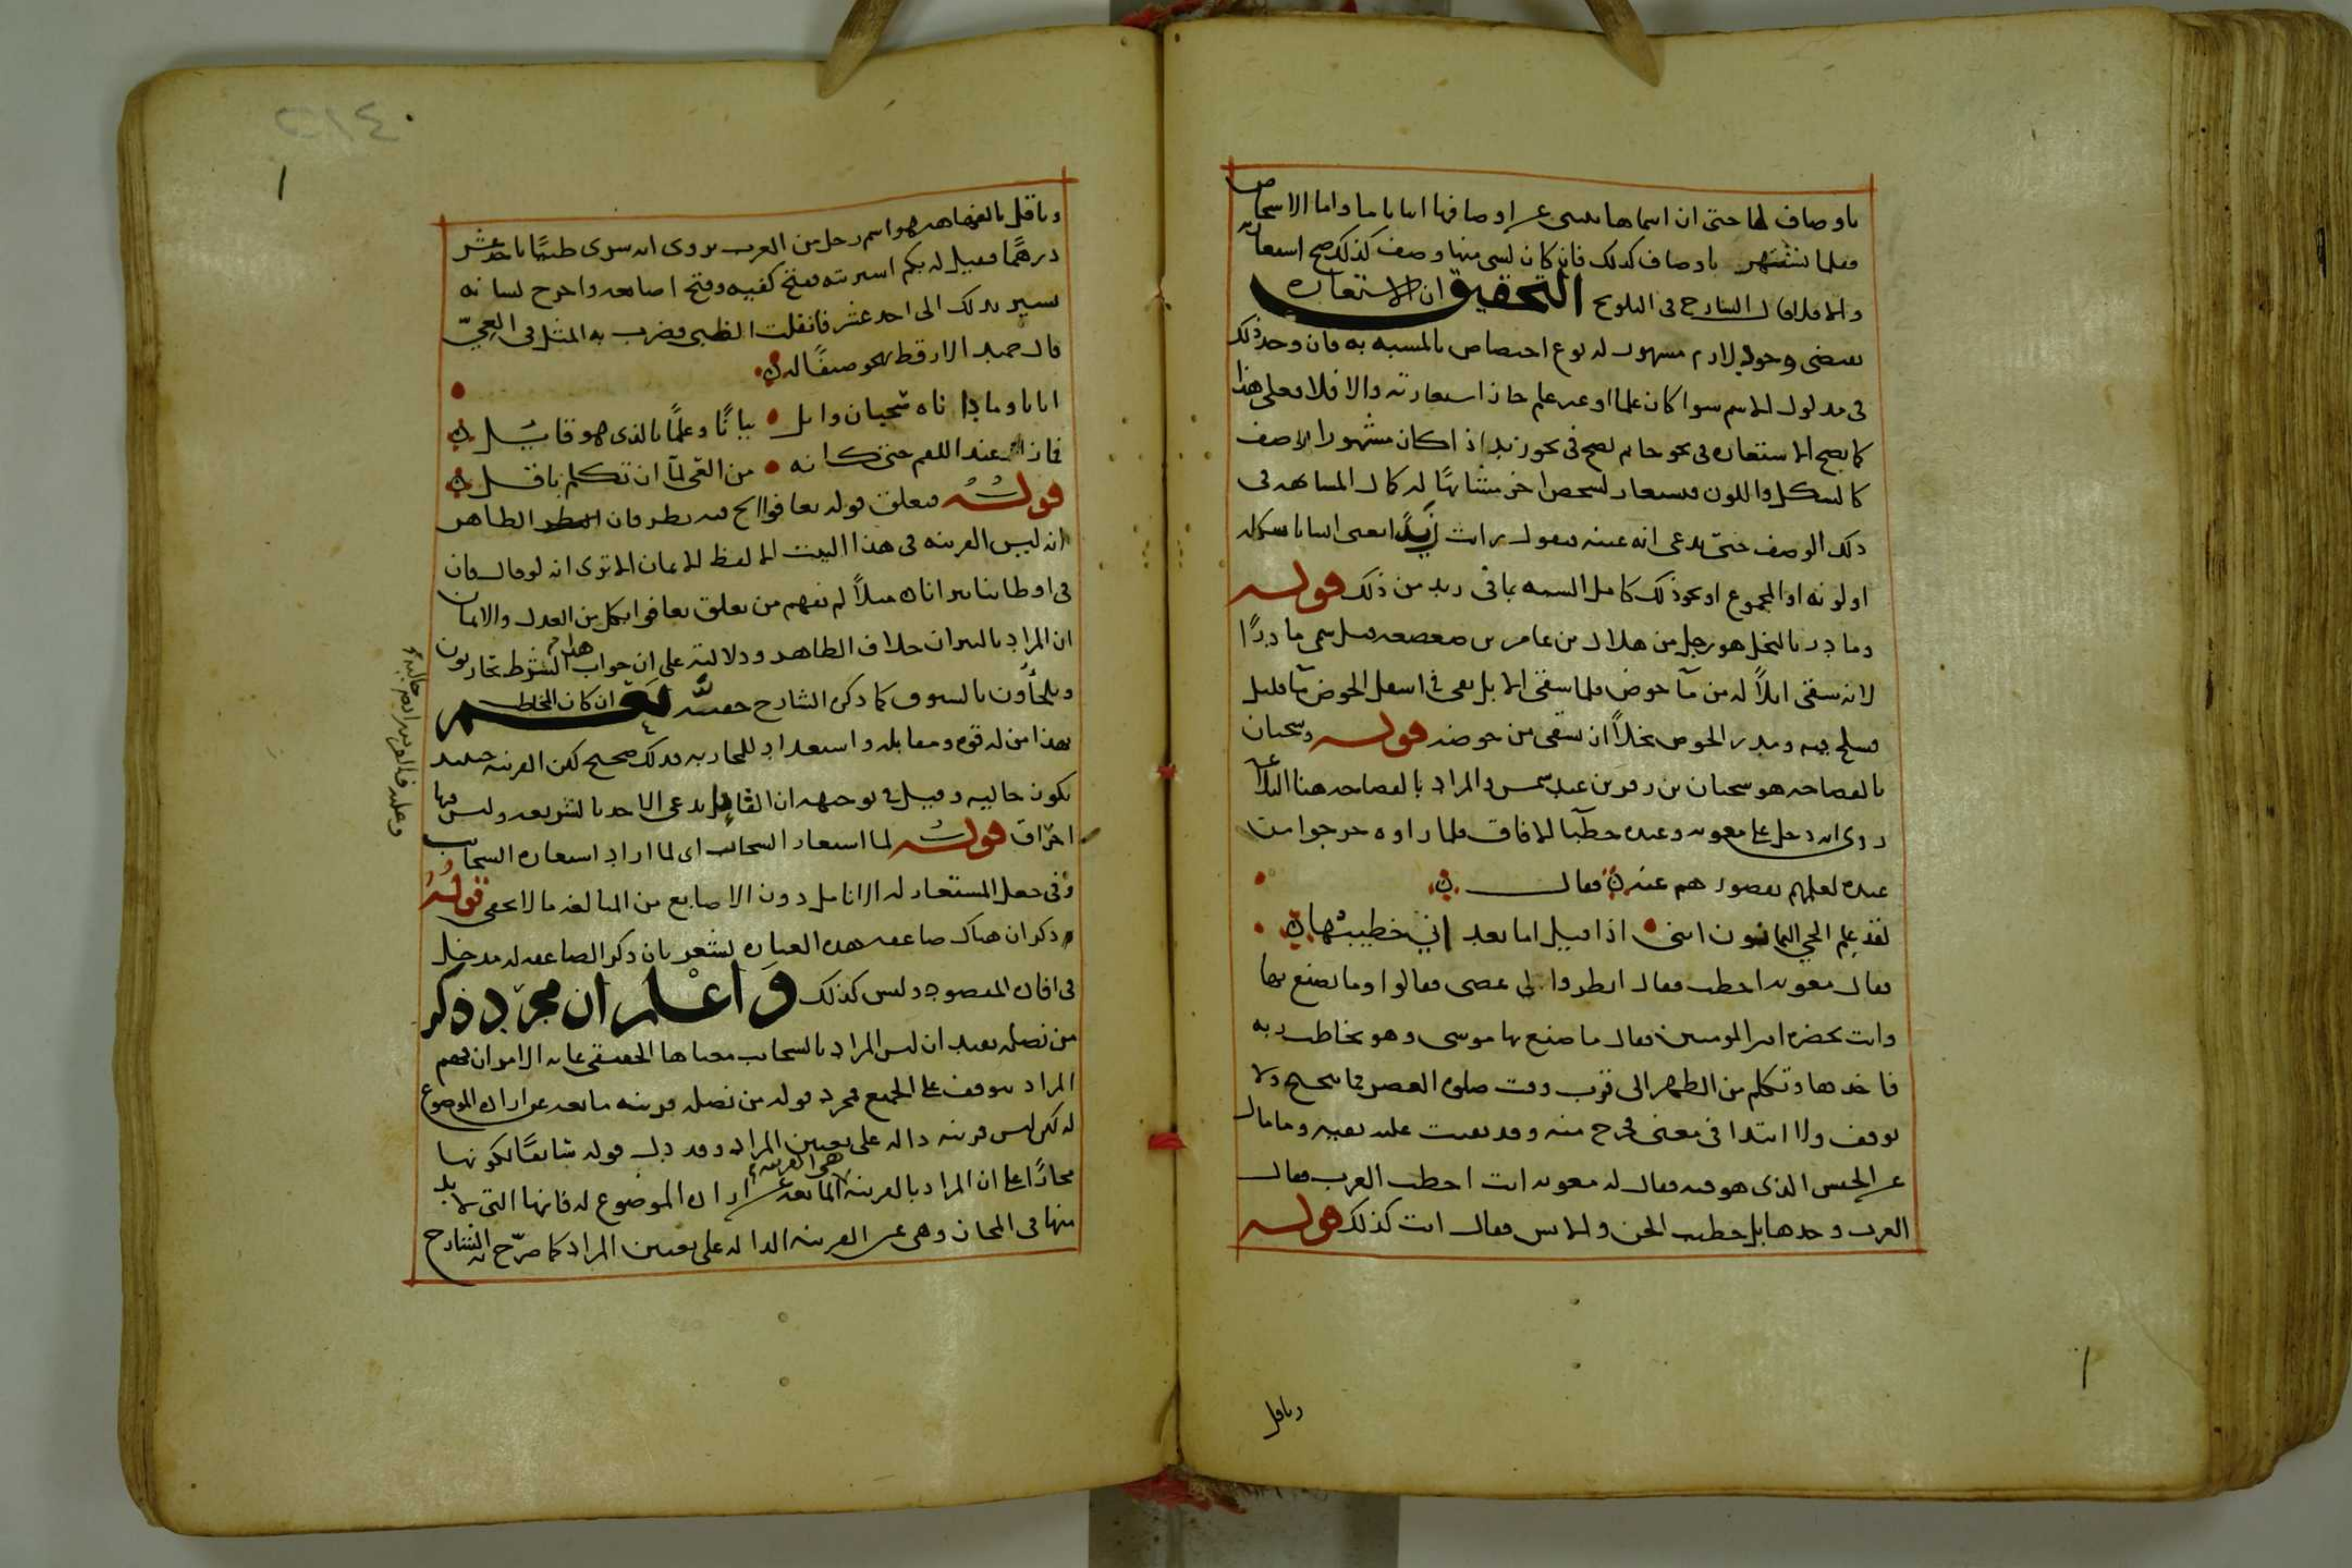 باوصاف لها حتى ان اسماها تنبئ عن اوصافها انباء ما واما الاشخاص
فقلما تشتهر باوصاف كذلك فان كان لشي منها وصف كذلك صح استعارته
والا فلا قال الشارح فى التلويح التحقيق ان الاستعارة
تقتضى وجود لازم مشهور له نوع اختصاص بالمشبه به فان وجد ذلك
فى مدلول الاسم سوا كان علما او غير علم جاز استعارته والا فلا وعلى هذا
كما يصح الاستعاره فى نحو حاتم تصح فى نحو زيد اذا كان مشهورا بوصف
كالشكل واللون فيستعار لشخص اخر متشابهًا له كمال المشابهه فى
ذلك الوصف حتى يدعى انه عينه فيقول رايت زيدًا يعنى انسانا شكله
او لونه او المجموع او نحو ذلك كامل الشبه بما فى زيد من ذلك قوله
ومادر بالبخل هو رجل من هلال بن عامر بن صعصعه قيل سمى مادرًا
لانه سقى ابلاً له من مآ حوض فلما سقى الابل بقى فى اسفل الحوض مآ قليل
فسلح فيه ومدر الحوض بخلاً ان يسقى من حوضه قوله وسحبان
بالفصاحه هو سحبان بن زفر بن عبد شمس والمراد بالفصاحه هنا البلاغه
روى انه دخل على معويه وعنده خطبآ الافاق فلما راوه خرجوا من
عنده لعلمهم بقصورهم عنه فقال
لقد علم الحي اليمانون اننى اذا قيل اما بعد اني خطيبها
فقال معويه اخطب فقال انظروا لى عصى فقالوا وما تصنع بها
وانت بحضره امير المومنين فقال ما صنع بها موسى وهو يخاطب ربه
فاخذها وتكلم من الظهر الى قرب وقت صلوة العصر ما تنحنح ولا
توقف ولا ابتدا فى معنى فخرج منه وقد بقيت عليه بقيه وما مال
عن الجنس الذى هو فيه فقال له معويه انت اخطب العرب فقال
العرب وحدها بل اخطب الجن والانس فقال انت كذلك قوله
وباقل
وباقل بالفهاهه هو اسم رجل من العرب يروى انه شرى ظبيًا باحد عشر
درهمًا فقيل له بكم اشتريته ففتح كفيه وفتح اصابعه واخرج لسانه
يشير بذلك الى احد عشر فانفلت الظبى فضرب به المثل فى العيّ
قال حميد الارقط يهجو ضيفًا له
اتانا وما داناه سحبان وايل بيانًا وعلمًا بالذى هو قايل
فما زال عند اللقم حتى كانه من العيّ لمآ ان تكلم باقل
قوله فيعلق قوله تعافوا الخ فيه نظر فان الظاهر
انه ليس القرينه فى هذا البيت الا لفظ الايمان الا ترى انه لو قال فان
فى اوطاننا نيرانا مثلاً لم يفهم من تعلق تعافوا بكل من العدل والايمان
ان المراد بالنيران خلاف الظاهر ودلالته على ان جواب هذا الشرط تحاربون
وتلجأون بالسيوف كما ذكره الشارح حفيّه نعم ان كان المخاطب
بهذا من له قوه ومقابله واستعداد للمحاربه فذلك صحيح لكن القرينه حينئذ
تكون حاليه وقيل فى توجيهه ان القايل يدعى الاخذ بالشريعه وليس فيها
احراق قوله لما استعار السحائب اى لما اراد استعاره السحايب
وفى جعل المستعار له الانامل دون الاصابع من المبالغه ما لا يخفى قوله
ذكر ان هناك صاعقه هذه العباره تشعر بان ذكر الصاعقه له مدخل
فى افادة المقصود وليس كذلك وَاعْلم ان مجرّد ذكر
من نصله يفيد ان ليس المراد بالسحايب معناها الحقيقى غايه الامر ان فهم
المراد يتوقف على الجميع فمجرد قوله من نصله قرينه مانعه عن اراده الموضوع
له لكن ليس قرينه داله على تعيين المراد وقد دل قوله سابقًا لكونها
مجازًا على ان المراد بالقرينه هى القرينه المانعه عن اراده الموضوع له فانها التى لا بد
منها فى المجاز وهى غير القرينه الداله على تعيين المراد كما صرّح به الشارح